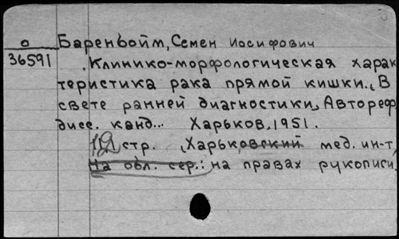 о Баренбойм, Семен Иосифович
36591 Клинико-морфологическая харак
теристика рака прямой кишки. (В
свете ранней диагностики). Автореф
дисс. канд... Харьков, 1951.
стр. (Харьковский мед. ин-т)
На обл. сер.: на правах рукописи